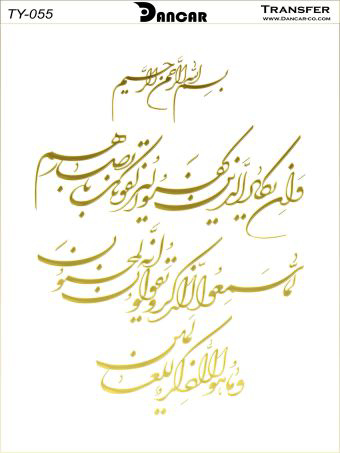 TY-055
DANCAR
TRANSFER
www.Dancar-co.com
بسم الله الرحمن الرحیم
وان یکاد الذین کفروا لیزلقونک بابصارهم
لما سمعوا الذکر و یقولون انه لمجنون
وما هو الا ذکر للعالمین